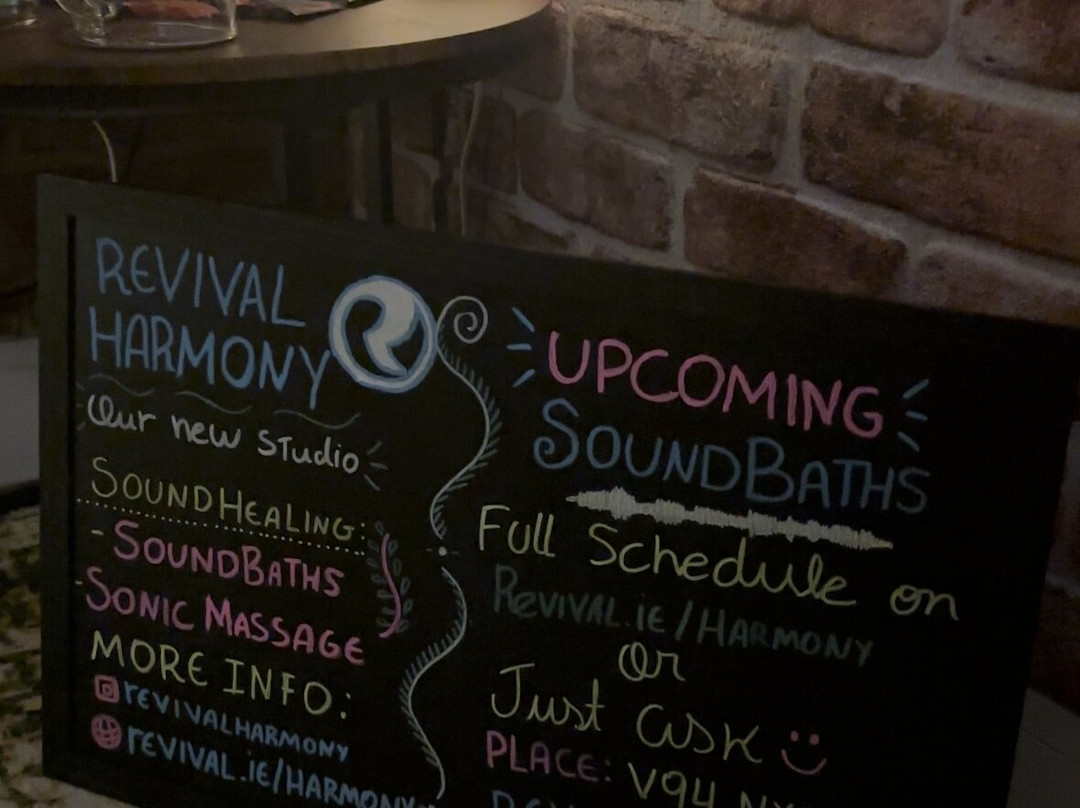 REVIVAL
HARMONY
Our new studio
SOUNDHEALING:
- SOUNDBATHS
- SONIC MASSAGE
MORE INFO:
rEVIVALHARMONY
rEVIVAL.iE/HARMONY
UPCOMING
SOUNDBATHS
Full Schedule on
REVIVAL.iE/HARMONY
Or
Just ask
PLACE: V94